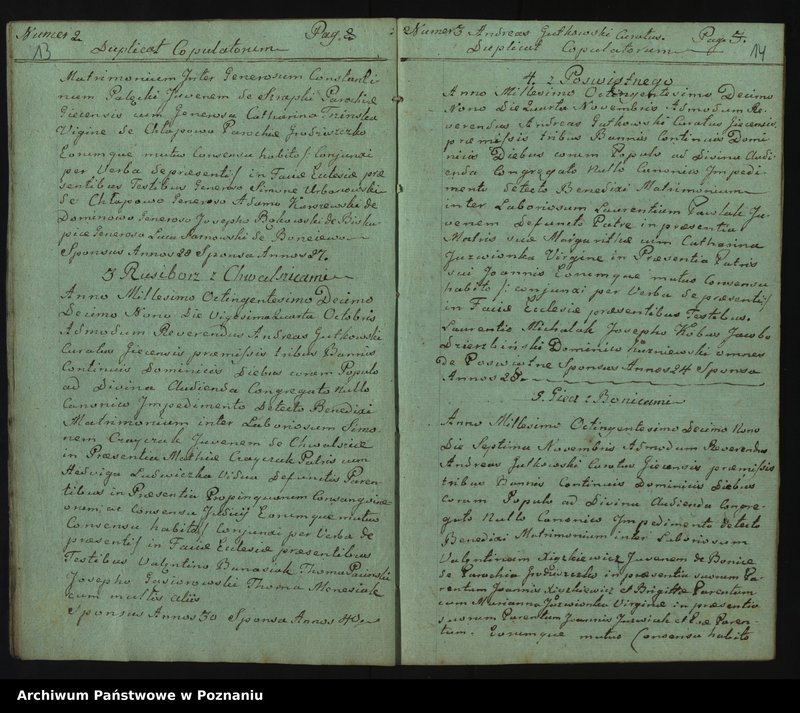 Numer 2
Pag. 2
13
Duplicat Copulatorum
Matrimonium Inter Generosum Constanti
num Juvenem de Parochiæ
Giecensis cum Generosa Catharina
Virgine de Chłapowo Parochiæ
Eorumque mutuo Consensu habito / Conjunxi
per Verba de præsenti / in Faciæ Ecclesiæ præ
sentibus Testibus Generoso Simone Urbanowski
de Chłapowo Generoso Adamo de
Dominowo Generoso Josepho de Bisku
pice Generoso Luca Jarnowski de
Sponsus Annos 28 Sponsa Annos 27.
3 Rusiborz z Chwalszicami
Anno Millesimo Octingentesimo Decimo
Decimo Nono Die Vigesima Quarta Octobris
Admodum Reverendus Andreas Gutkowski
Curatus Giecensis præmissis tribus Bannis
Continuis Dominicis Diebus coram Populo
ad Divina Audienda Congregato Nullo
Canonico Impedimento Detecto Benedixi
Matrimonium inter Laboriosum Simo
nem Crayczak Juvenem de
in Præsentia Mathiæ Crayczak Patris cum
Hedviga Ludwiczka Vidua Defunctis Paren
tibus in Præsentia Propinquorum Consangvine
orum, ac Consensu Judicij Eorumque mutuo
Consensu habito / Conjunxi per Verba de
præsenti / in Faciæ Ecclesiæ præsentibus
Testibus Valentino Banasiak Thoma
Josepho Gąsiorowski Thoma
cum multis aliis
Sponsus Annos 30 Sponsa Annos 40.
Numer 3 Andreas Gutkowski Curatus.
Pag. 3.
14
Duplicat Copulatorum
4. z Poswiętnego
Anno Millesimo Octingentesimo Decimo
Nono Die Quarta Novembris Admodum Re
verendus Andreas Gutkowski Curatus Giecensis
præmissis tribus Bannis Continuis Domi
nicis Diebus coram Populo ad Divina Audi
enda Congregato Nullo Canonico Impedi
mento detecto Benedixi Matrimonium
inter Laboriosum Laurentium Pawlak Ju
venem Defuncto Patre in præsentia
Matris suæ Margarithæ cum Catharina
Juzwionka Virgine in Præsentia Patris
sui Joannis Eorumque mutuo Consensu
habito /: conjunxi per Verba de præsenti /
in Faciæ Ecclesiæ præsentibus Testibus.
Laurentio Michalak Josepho Kobus Jacobo
Dzierzbiński Dominico Kuzniewski omnes
de Poswiętne Sponsus Annos 24 Sponsa
Annos 23.
5. Giecz z Bonicami
Anno Millesimo Octingentesimo Decimo Nono
Die Septima Novembris Admodum Reverendus
Andreas Gutkowski Curatus Giecensis præmissis
tribus Bannis Continuis Dominicis Diebus
coram Populo ad Divina Audienda Congre
gato Nullo Canonico Impedimento detecto
Benedixi Matrimonium inter Laboriosum
Valentinum Xiązkiewicz Juvenem de Bonice
de Parochia in præsentia suorum Pa
rentum Joannis Xiązkiewicz et Brigittæ Parentum
cum Marianna Juzwionka Virgine in præsentia
suorum Parentum Joannis Juzwiak et Evæ Paren
tum. Eorumque mutuo Consensu habito
Archiwum Państwowe w Poznaniu